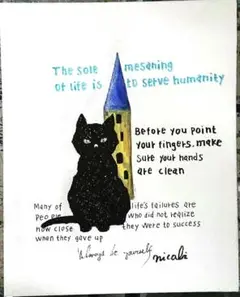 The sole mesaning
of life is to serve humanity
Before you point
your fingers, make
sure your hands
are clean
Many of life's failures are
people who did not realize
how close they were to success
when they gave up
Always be yourself